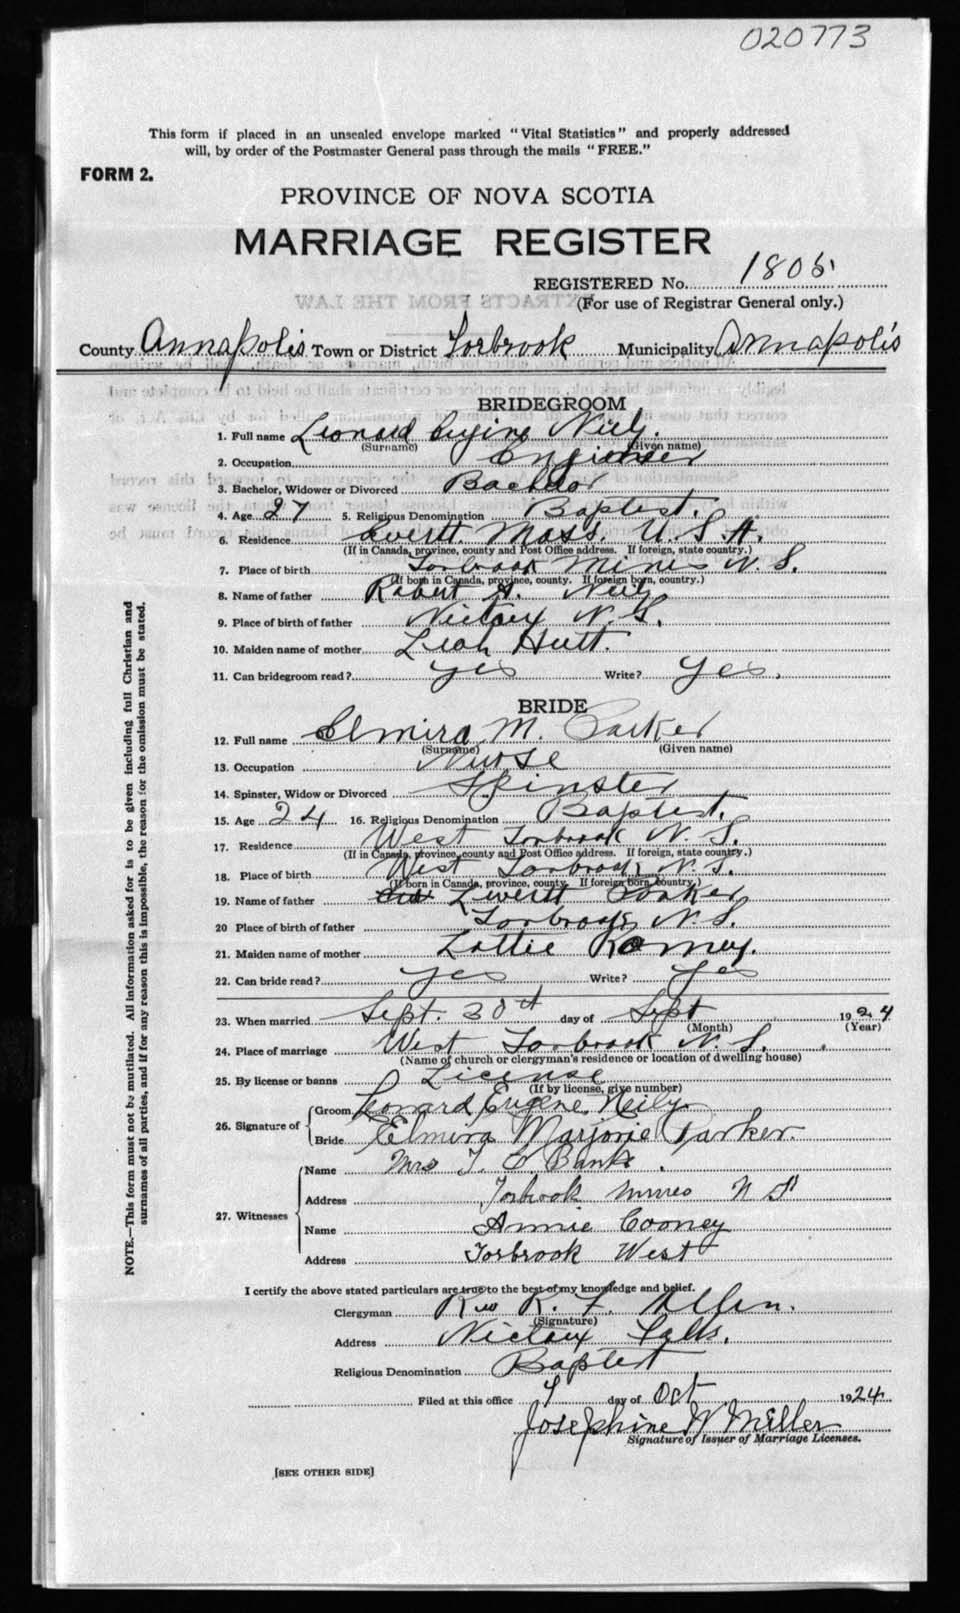 020773
This form if placed in an unsealed envelope marked "Vital Statistics" and properly addressed
will, by order of the Postmaster General pass through the mails "FREE."
FORM 2.
PROVINCE OF NOVA SCOTIA
MARRIAGE REGISTER
REGISTERED No. 1805
(For use of Registrar General only.)
County Annapolis Town or District Torbrook Municipality Annapolis
BRIDEGROOM
1. Full name Leonard Eugine Neily.
(Surname) (Given name)
2. Occupation Engineer
3. Bachelor, Widower or Divorced Bachelor
4. Age 27 5. Religious Denomination Baptist.
6. Residence Evertt Mass. U.S.A.
(If in Canada, province, county and Post Office address. If foreign, state country.)
7. Place of birth Torbrook Mines N.S.
(If born in Canada, province, county. If foreign born, country.)
8. Name of father Robert A. Neily
9. Place of birth of father Nictaux N.S.
10. Maiden name of mother Leah Hutt.
11. Can bridegroom read? yes Write? yes.
BRIDE
12. Full name Elmira M. Parker
(Surname) (Given name)
13. Occupation Nurse
14. Spinster, Widow or Divorced Spinster
15. Age 24 16. Religious Denomination Baptist.
17. Residence West Torbrook N.S.
(If in Canada, province, county and Post Office address. If foreign, state country.)
18. Place of birth West Torbrook N.S.
(If born in Canada, province, county. If foreign born, country.)
19. Name of father Everett Parker
20. Place of birth of father Torbrook N.S.
21. Maiden name of mother Lottie Romey.
22. Can bride read? yes Write? yes
23. When married Sept. 30th day of Sept 1924
(Month) (Year)
24. Place of marriage West Torbrook N.S.
(Name of church or clergyman's residence or location of dwelling house)
25. By license or banns License
(If by license, give number)
26. Signature of Groom Leonard Eugene Neily
Bride Elmira Marjorie Parker.
27. Witnesses Name Mrs T. C. Banks.
Address Torbrook Mines N S
Name Annie Cooney
Address Torbrook West
I certify the above stated particulars are true to the best of my knowledge and belief.
Clergyman Rev R. F. Allen.
(Signature)
Address Nictaux Falls.
Religious Denomination Baptist
Filed at this office 7 day of Oct 1924
Josephine W. Miller
Signature of Issuer of Marriage Licenses.
[SEE OTHER SIDE]
NOTE.—This form must not be mutilated. All information asked for is to be given including full Christian and
surnames of all parties, and if for any reason this is impossible, the reason for the omission must be stated.